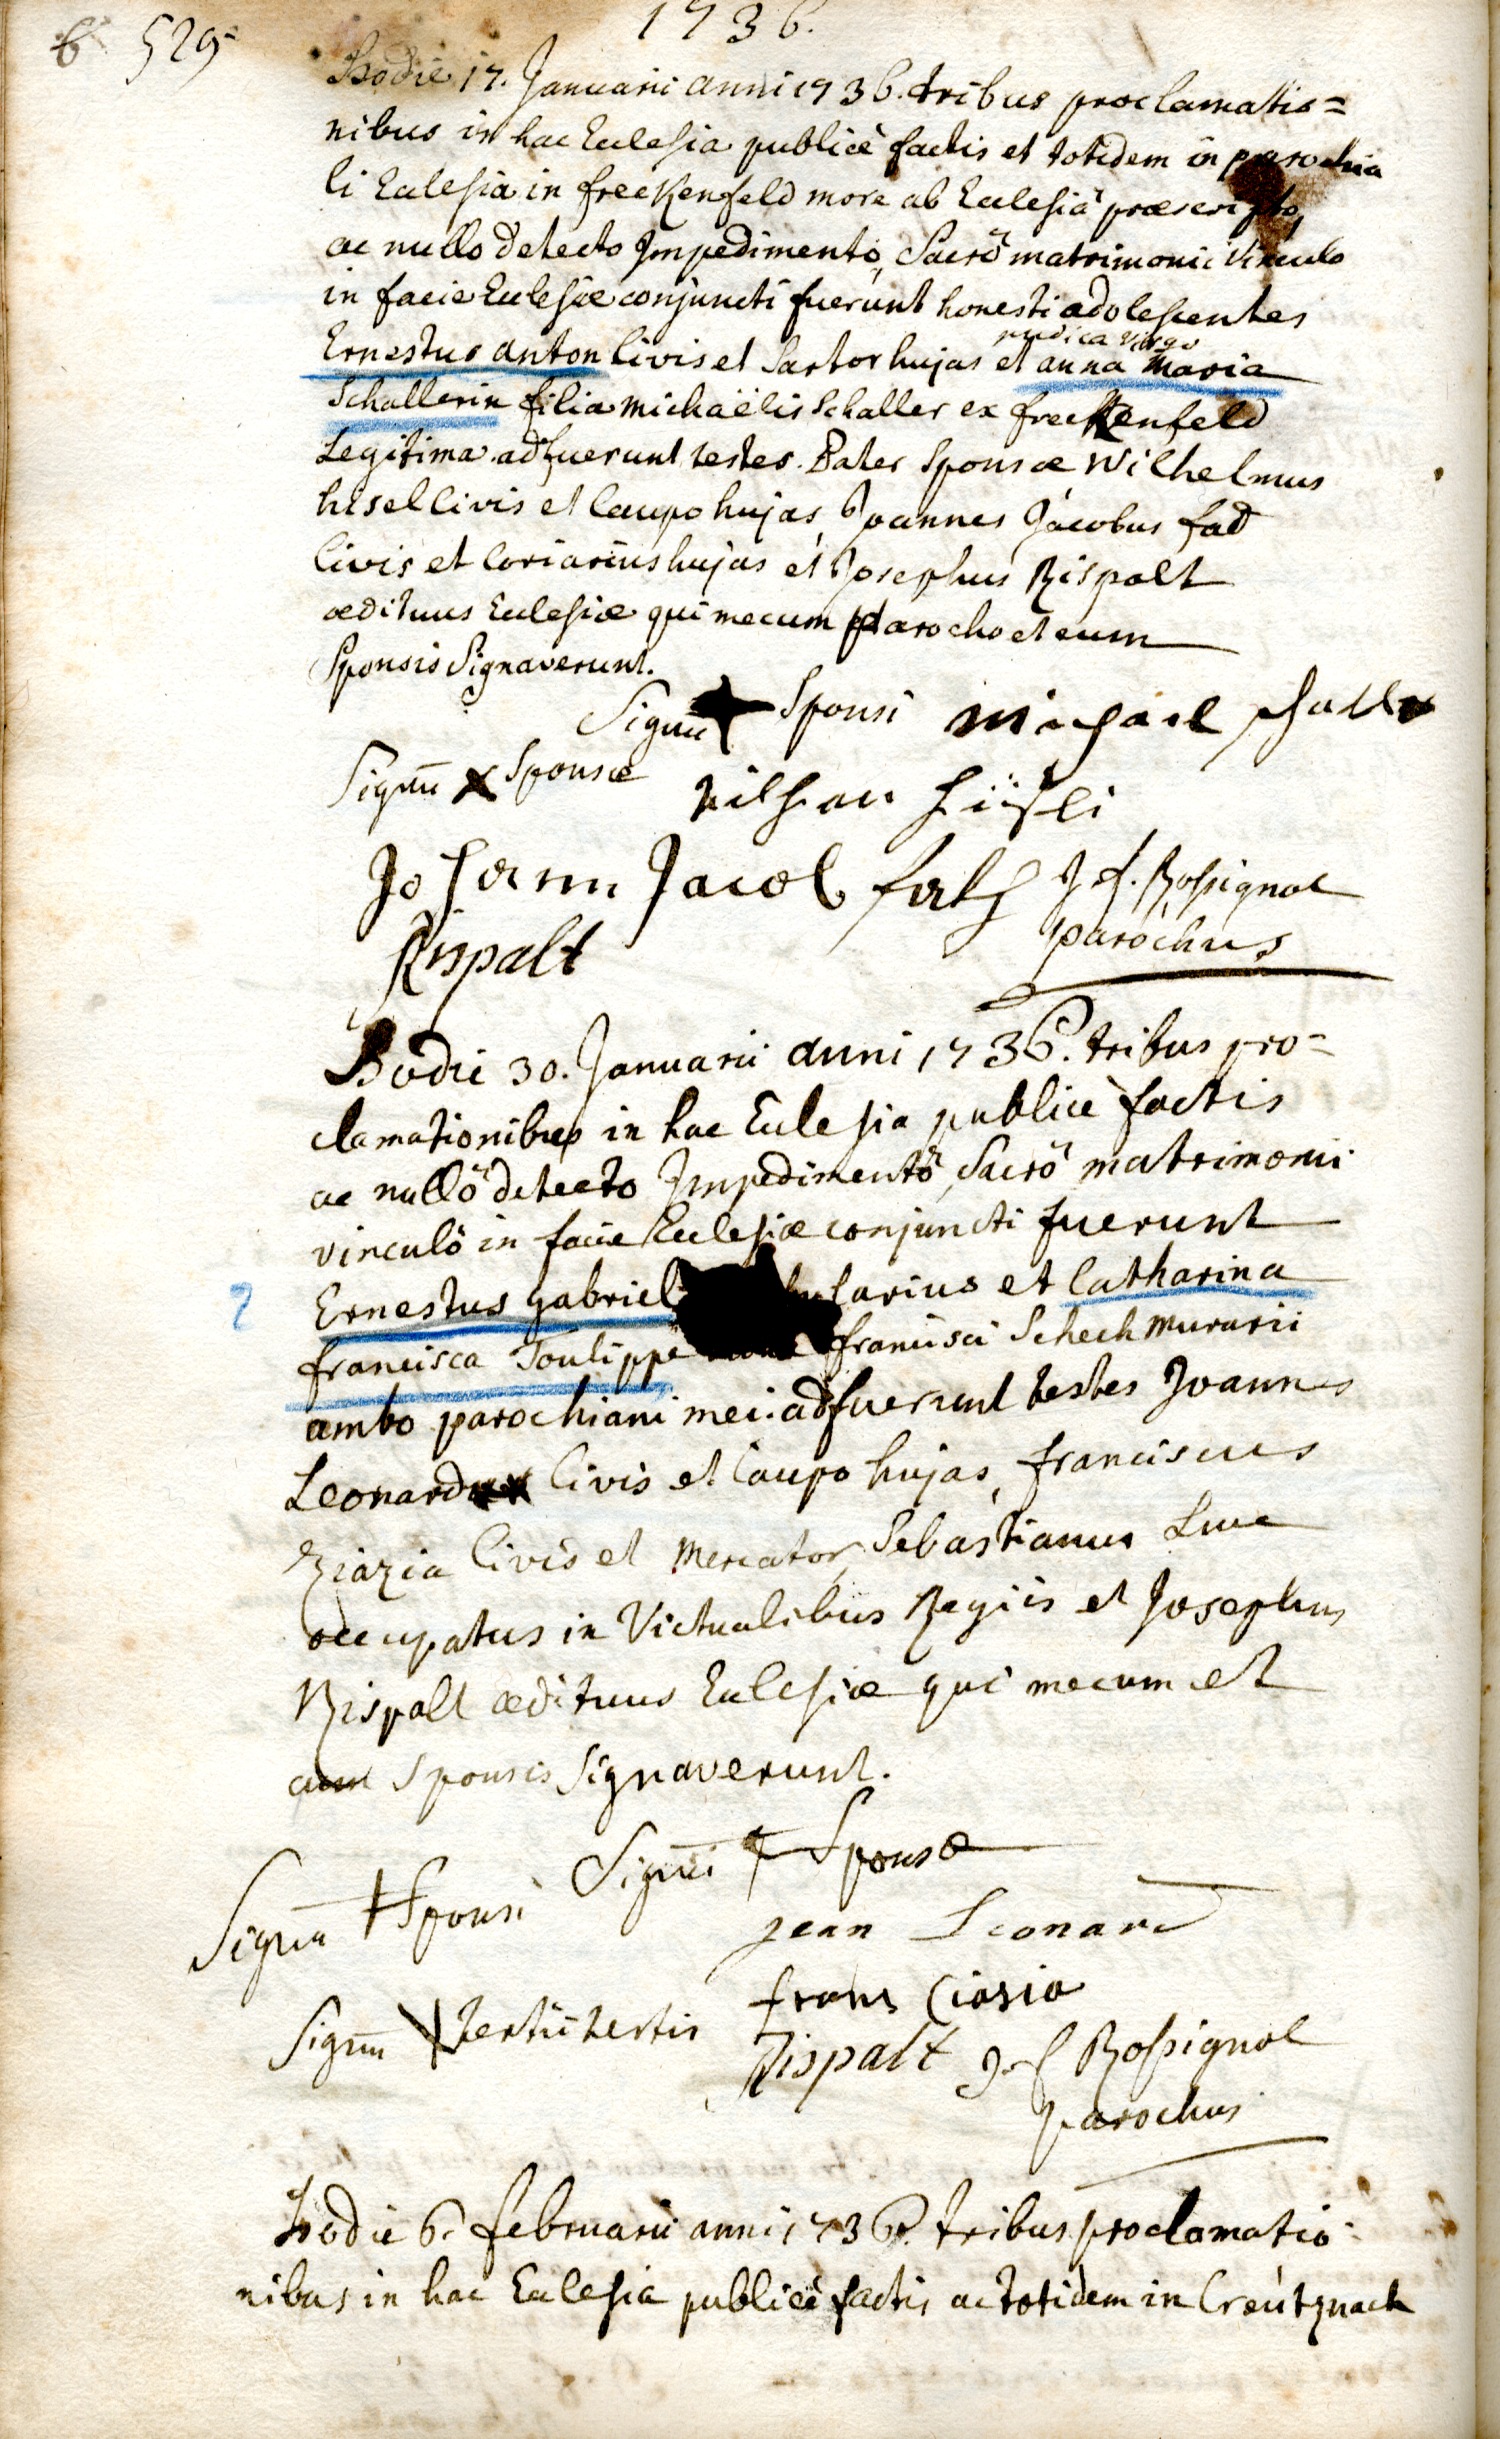 6 529
1736.
Hodie 17. Januarii anni 1736. tribus proclamatio=
nibus in hac Ecclesia publicè factis et totidem in parochia
li Ecclesia in freckenfeld more ab Ecclesiâ præscripto,
ac nullo detecto Impedimentô, Sacrô matrimonii Vinculo
in facie Ecclesiæ conjuncti fuerunt honesti adolescentes
pudica virgo
Ernestus anton Civis et Sartor hujas et anna Maria
Schallerin filia Michaëlis Schaller ex freckenfeld
Legitima. adfuerunt testes. Pater Sponsæ Wilhelmus
hisel Civis et Caupo hujas, Joannes Jacobus fad
Civis et Coriarius hujas et Josephus Rispalt
ædituus Ecclesiæ qui mecum parocho et cum
Sponsis Signaverunt.
Signu Sponsi Michael schaller
Signu x Sponsæ
Johann Jacob fath J f. Rossignol
Rispalt parochus
Hodie 30. Januarii anni 1736. tribus pro=
clamationibus in hac Ecclesia publicè factis
ac nullô detecto Impedimentô, Sacrô matrimonii
vinculô in facie Ecclesiæ conjuncti fuerunt
? Ernestus gabriel et Catharina
francisca Toulippe francisci Schech Murarii
ambo parochiani mei. adfuerunt testes Joannes
Leonard Civis et Caupo hujas, franciscus
Ziazia Civis et Mercator, Sebastianus Luce
occupatus in Victualibus Regiis et Josephus
Rispalt ædituus Ecclesiæ qui mecum et
cum Sponsis Signaverunt.
Signu + Sponsi Signu + Sponsæ
jean Leonard
frans Ciasia
Signu tertii testis
Rispalt J f Rossignol
parochus
Hodie 6. februarii anni 1736. tribus proclamatio=
nibus in hac Ecclesia publicè factis ac totidem in Creutznach